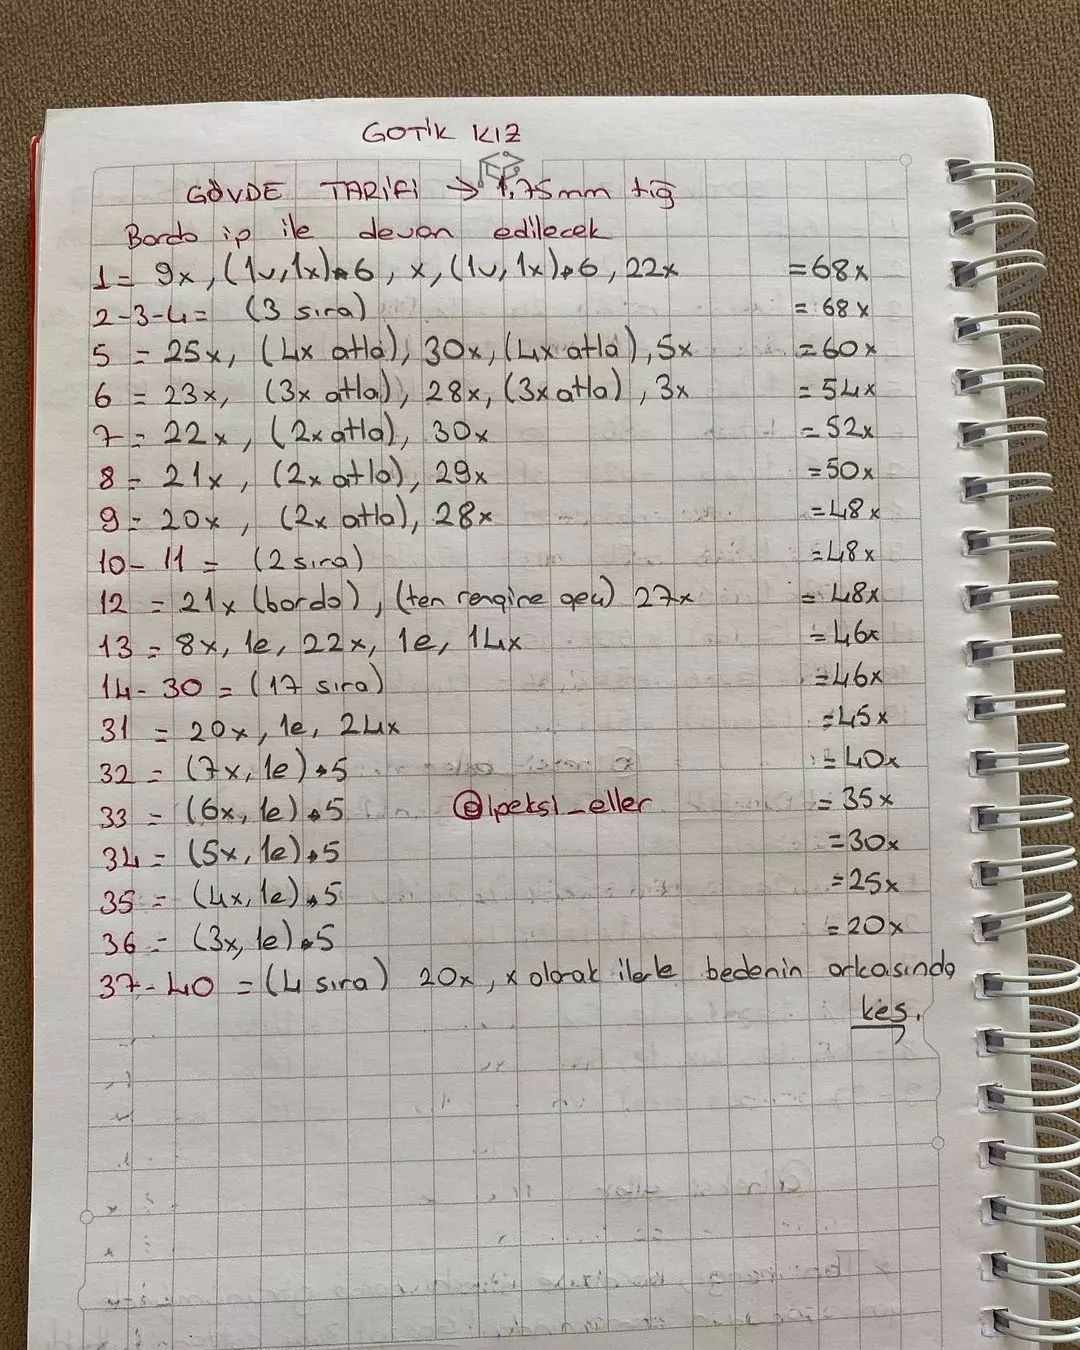 GOTİK KIZ
GÖVDE TARİFİ → 1,75mm tığ
Bordo ip ile devam edilecek
1 = 9x, (1v,1x)*6, x, (1v,1x)*6, 22x =68x
2-3-4= (3 sıra) =68x
5 = 25x, (4x atla), 30x, (4x atla), 5x =60x
6 = 23x, (3x atla), 28x, (3x atla), 3x =54x
7 = 22x, (2x atla), 30x =52x
8 = 21x, (2x atla), 29x =50x
9 = 20x, (2x atla), 28x =48x
10-11 = (2 sıra) =48x
12 = 21x (bordo), (ten rengine geç) 27x =48x
13 = 8x, 1e, 22x, 1e, 14x =46x
14-30 = (17 sıra) =46x
31 = 20x, 1e, 24x =45x
32 = (7x, 1e)*5 =40x
33 = (6x, 1e)*5 @ipeksi_eller =35x
34 = (5x, 1e)*5 =30x
35 = (4x, 1e)*5 =25x
36 = (3x, 1e)*5 =20x
37-40 = (4 sıra) 20x, x olarak ilerle bedenin arkasında
kes.